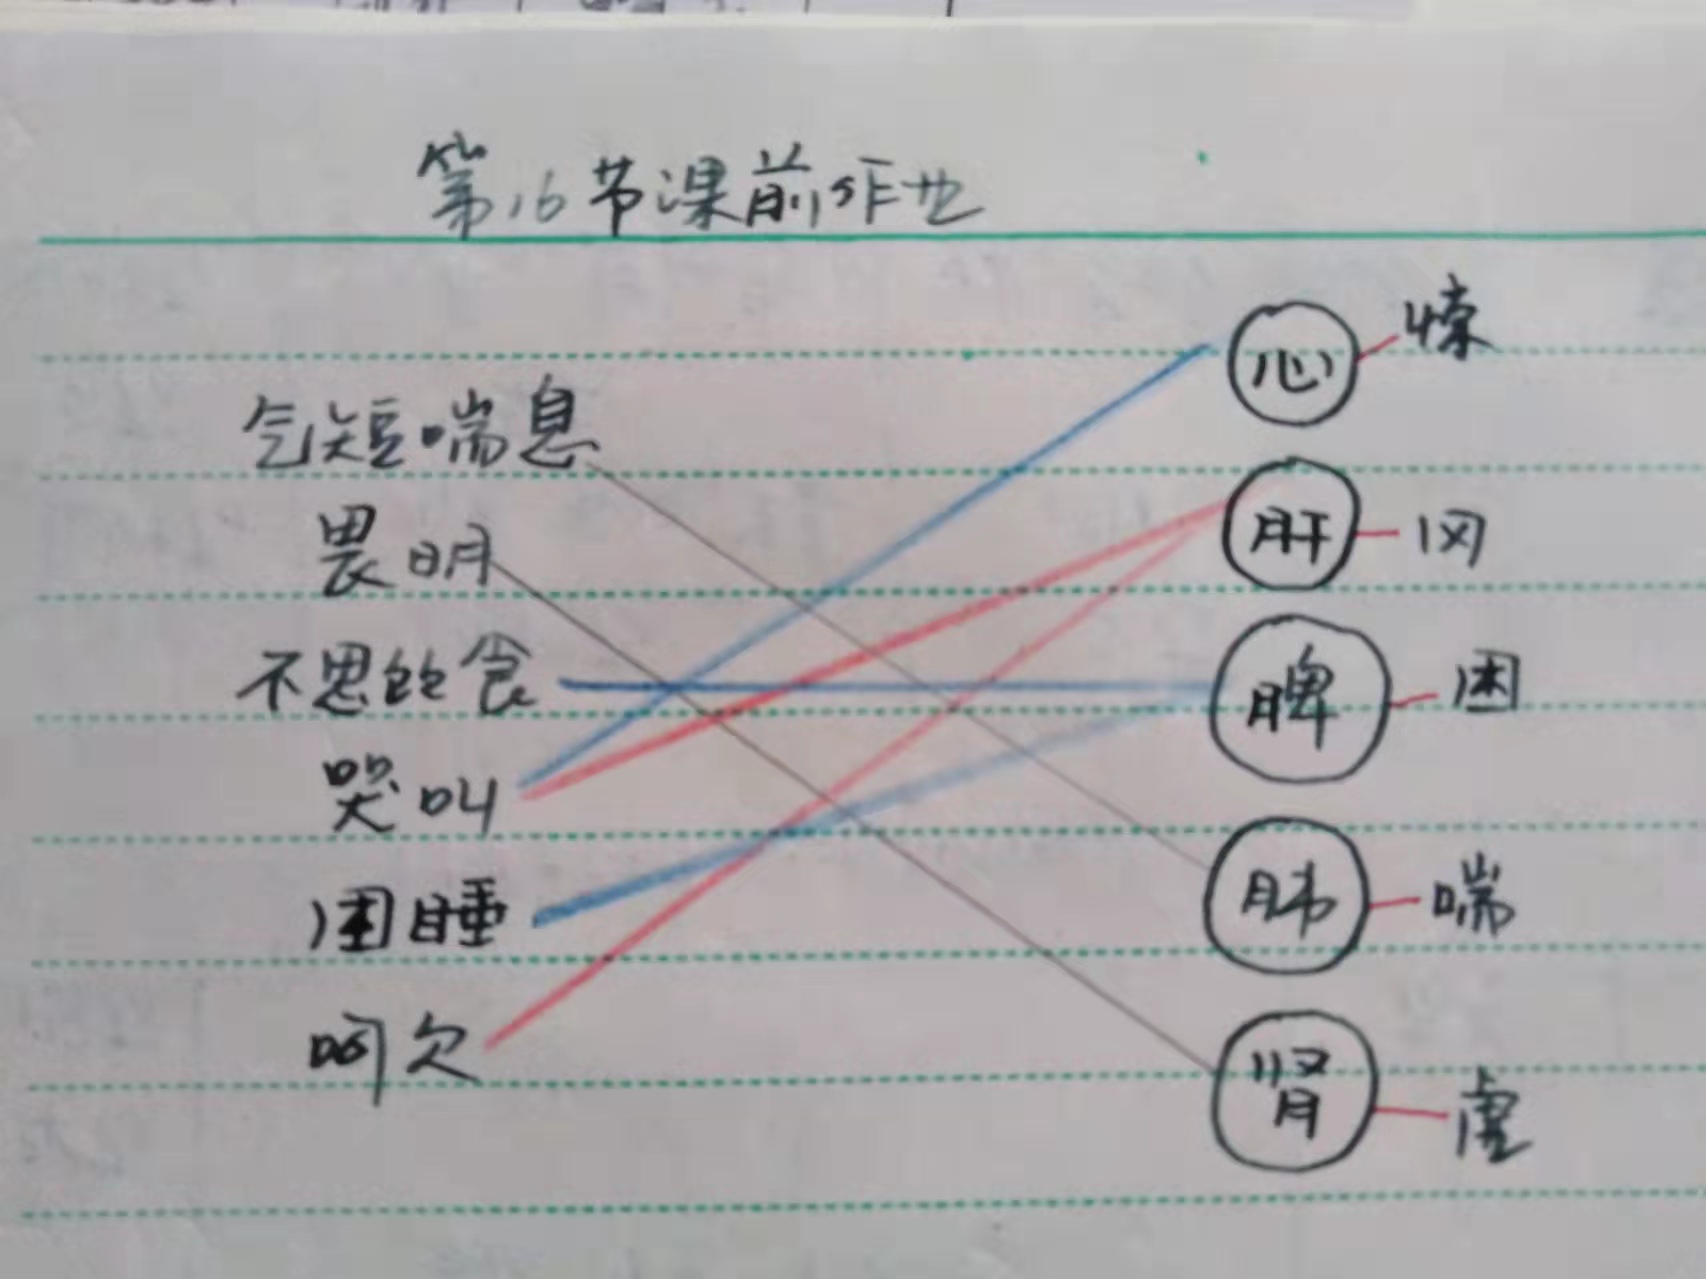 第16节课前作业
心 悚
气短喘息
肝 风
畏明
不思饮食
脾 困
哭叫
困睡
肺 喘
呵欠
肾 虚